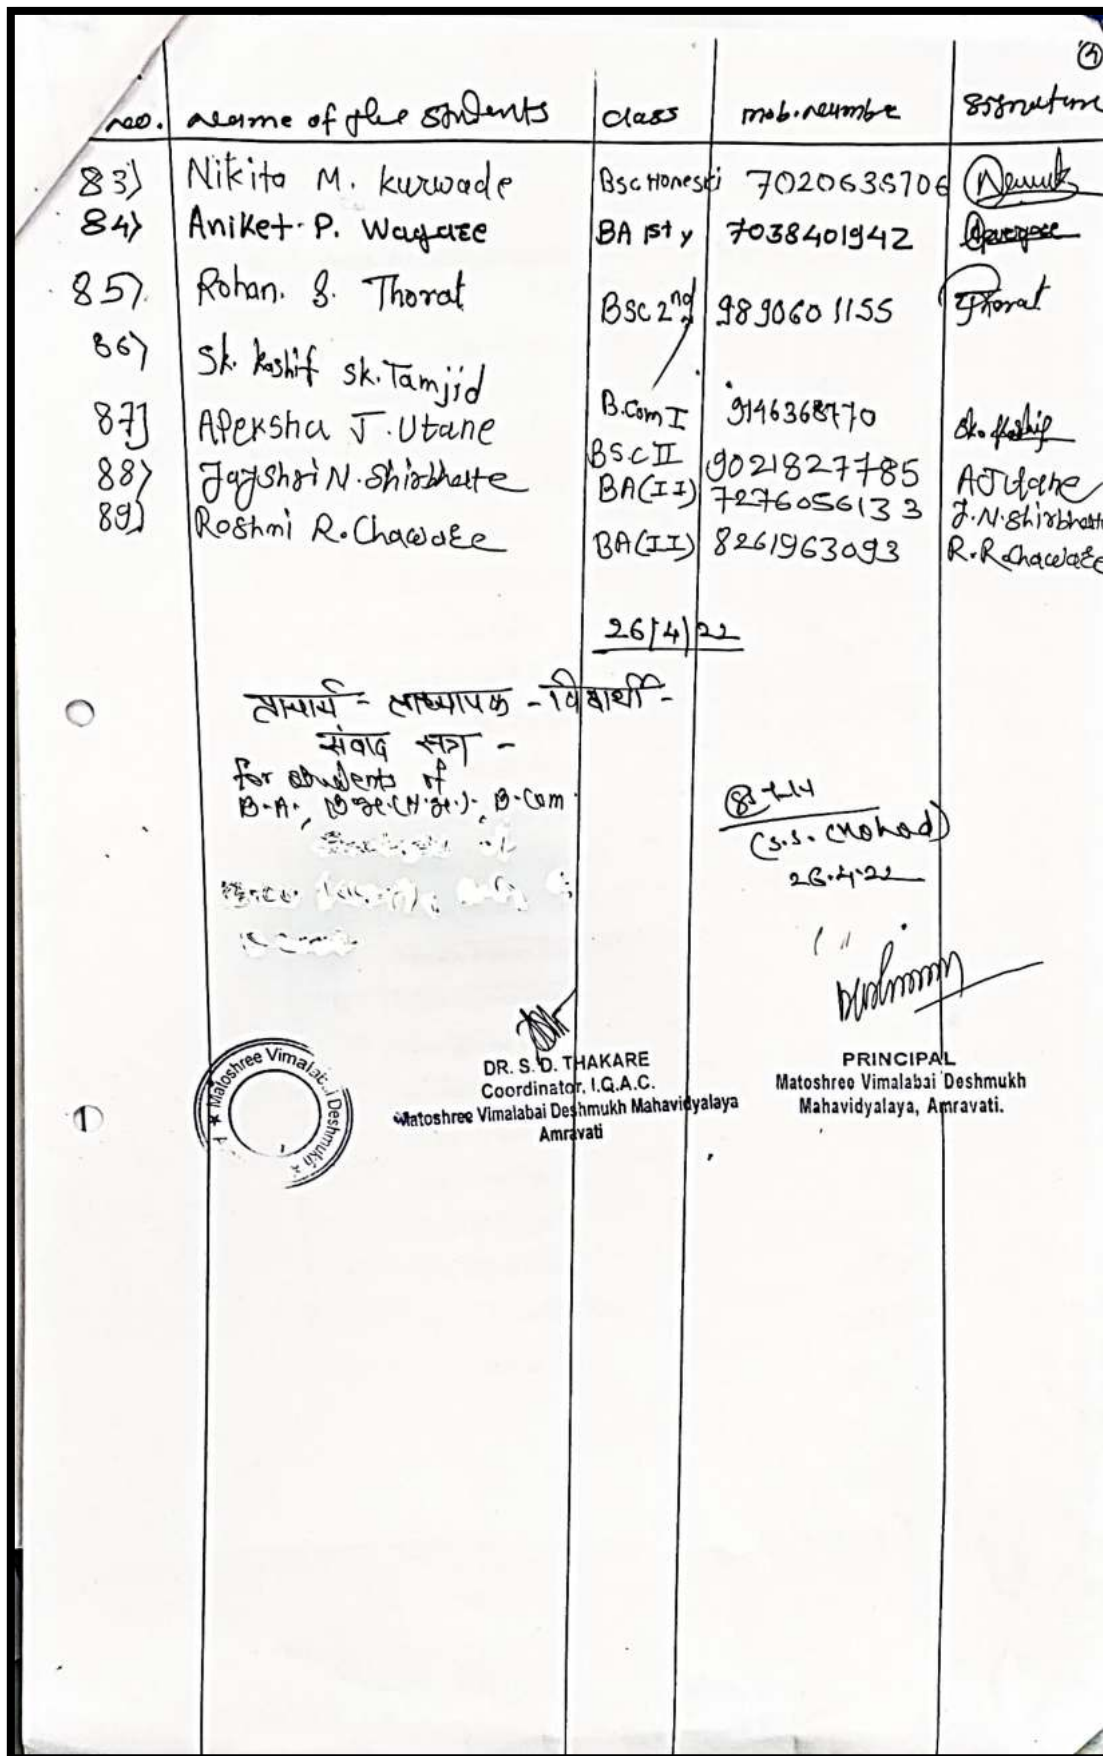 no. name of the students class mob. number signature
83) Nikita M. Kurwade Bsc Homesci 7020635706
84) Aniket P. Wagaze BA 1st y 7038401942
85) Rohan. S. Thorat BSC 2nd 9890601155 Thorat
86) Sk. Kashif Sk. Tamjid B.Com I 9146368770 Sk. Kashif
87] Apeksha J. Utane BSC II 9021827785 AJUtane
88) Jayshri N. Shirbhate BA(II) 7276056133 J.N.Shirbhate
89) Roshmi R. Chawaze BA(II) 8261963093 R.R.Chawaze
26/4/22
प्राचार्य - प्राध्यापक - विद्यार्थी -
संवाद सत्र -
for students of
B.A., B.Sc.(H.Sc.), B.Com.
(S.S. Chohad)
26.4.22
DR. S. D. THAKARE
Coordinator, I.Q.A.C.
Matoshree Vimalabai Deshmukh Mahavidyalaya
Amravati
PRINCIPAL
Matoshree Vimalabai Deshmukh
Mahavidyalaya, Amravati.
★ Matoshree Vimalabai Deshmukh